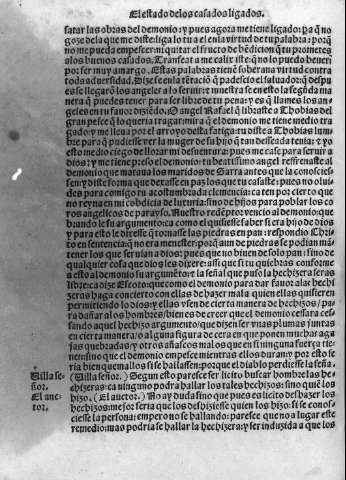 El estado delos casados ligados.
satar las obras del demonio: y pues agora me tiene ligado: pa q̃ no
goze dela que me diste: liga lo tu a el enla virtud de tu palabra: porq̃
no me pueda empescer: ni quitar el fructo de bẽdicion q̃ tu prometes
alos buenos casados. Transeat a me calix iste: q̃ no lo puedo bever:
por ser muy amargo. Estas palabras tienẽ soberana virtud contra
toda adversidad. Dize se enla tẽtaciõ q̃ padescio el salvador: q̃ despu
es se llegarõ los angeles a lo servir: τ nuestra fe en esto la segũda ma
nera q̃ puedes tener para ser libre de tu pena: y es q̃ llames los an-
geles en tu favor: diziẽdo. O angel Raphael q̃ libraste a Thobias del
gran pesce q̃ lo queria tragar: mira q̃ el demonio me tiene medio tra
gado: y me lleua por el arroyo desta fatiga: tu diste a Thobias lum
bre para q̃ pudiesse ver la muger de su hijo q̃ tan desseada tenia: τ yo
esto medio ciego de llorar mi desventura: pues me case para servir a
dios: y me tiene preso el demonio: tu beatissimo angel refrenaste al
demonio que mataua los maridos de Sarra antes que la conoscies-
sen: y diste forma que dexasse en paz los que tu casaste: pues no olui
des para comigo tu acostumbrada clemencia: ca ten por cierto que
no reyna en mi cobdicia de luxuria: sino de hijos para poblar los co
ros angelicos de parayso. Nuestro redẽptor vencio al demonio: que
brando le su argumẽto: ca como el quisiesse saber si era hijo de dios
y para esto le diresse q̃ tornasse las piedras en pan: respondio Chris
to en sentencia: q̃ no era menester: porq̃ aun de piedras se podian mã
tener los que servian a dios: pues que no biuen de solo pan: sino de
qualquier cosa que dios les dixere: assi que si tu quiebras conforme
a esto al demonio su argumẽto: τ la señal que puso la hechizera seras
libre: ca dize Escoto: que como el demonio para dar fauor alas hechi
zeras haga concierto con ellas de hazer mal a quien ellas quisieren
permitiendo lo dios: y ellas vsen de cierta manera de hechizos/ pa
ra dañar a los hombres/ bien es de creer que el demonio cessara ces-
sando aquel hechizo argumento/ que dizen ser vnas plumas juntas
en cierta manera/ o alguna figura de cera en que ponen muchas agu
jas quebradas/ y otros añascos malos: que en si ninguna fuerça tie
nen: sino que el demonio empesce mientras ellos duran: y por esto se
ria bien quemallos si se hallassen: porque el diablo perdiesse la seña.
Villa se-
ñor.
(Villa señor.) Segun esto paresce ser licito buscar hombre las he-
chizeras: ca ninguno podra hallar los tales hechizos: sino quiẽ los
El auc-
tor.
hizo. (El auctor.) No ay duda sino que pues es licito deshazer los
hechizos: mejor seria que los deshiziesse quien los hizo: si se conos-
ciesse la persona: empero no se hallando: paresce que no a lugar este
remedio: mas podria se hallar la hechizera: y ser induzida a que los